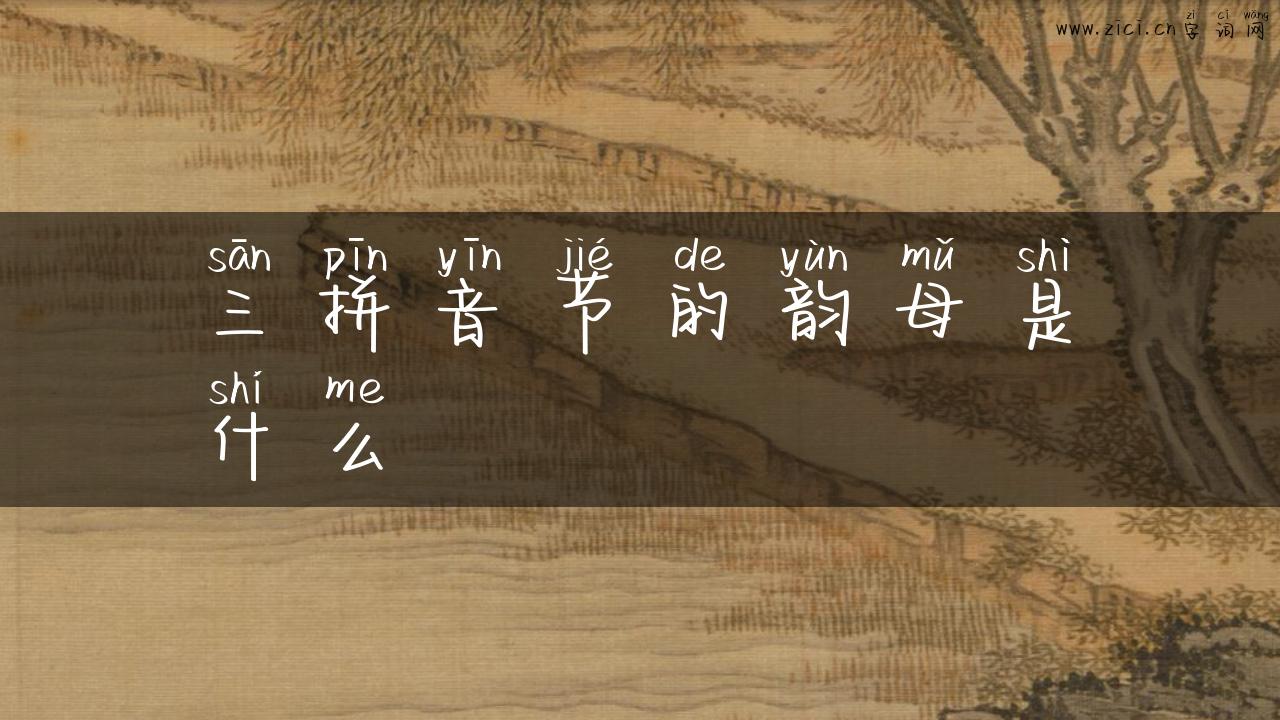 zì cí wǎng
www.zici.cn字词网
sān pīn yīn jié de yùn mǔ shì
三拼音节的韵母是
shí me
什么